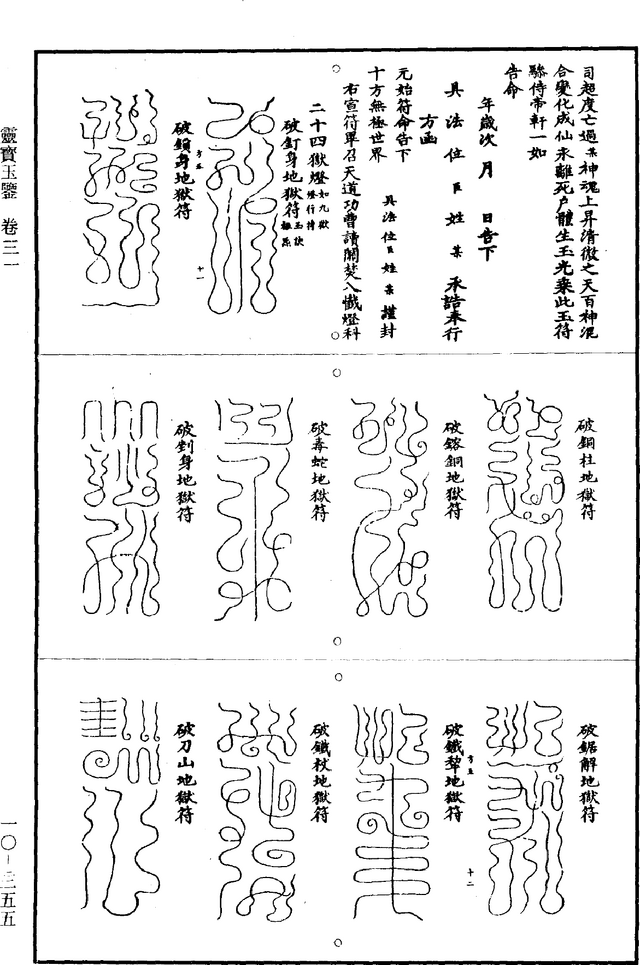 司超度亡過某神魂上昇清微之天百神混
合變化成仙永離死戶體生玉光乘此玉符
驂侍帝軒一如
告命
年歲次 月 日告下
具法位臣姓某承誥奉行
方函
元始符命告下
具法位臣姓某謹封
十方無極世界
右宣符畢召天道功曹讀關焚入懺燈科
二十四獄燈如九獄燈行持
破釘身地獄符
十一
破鎖身地獄符
破銅柱地獄符
破鎔銅地獄符
破毒蛇地獄符
破剉身地獄符
破鋸解地獄符
破鐵犂地獄符
十二
破鐵杖地獄符
破刀山地獄符
靈寶玉鑒 卷三一
一〇-三五五